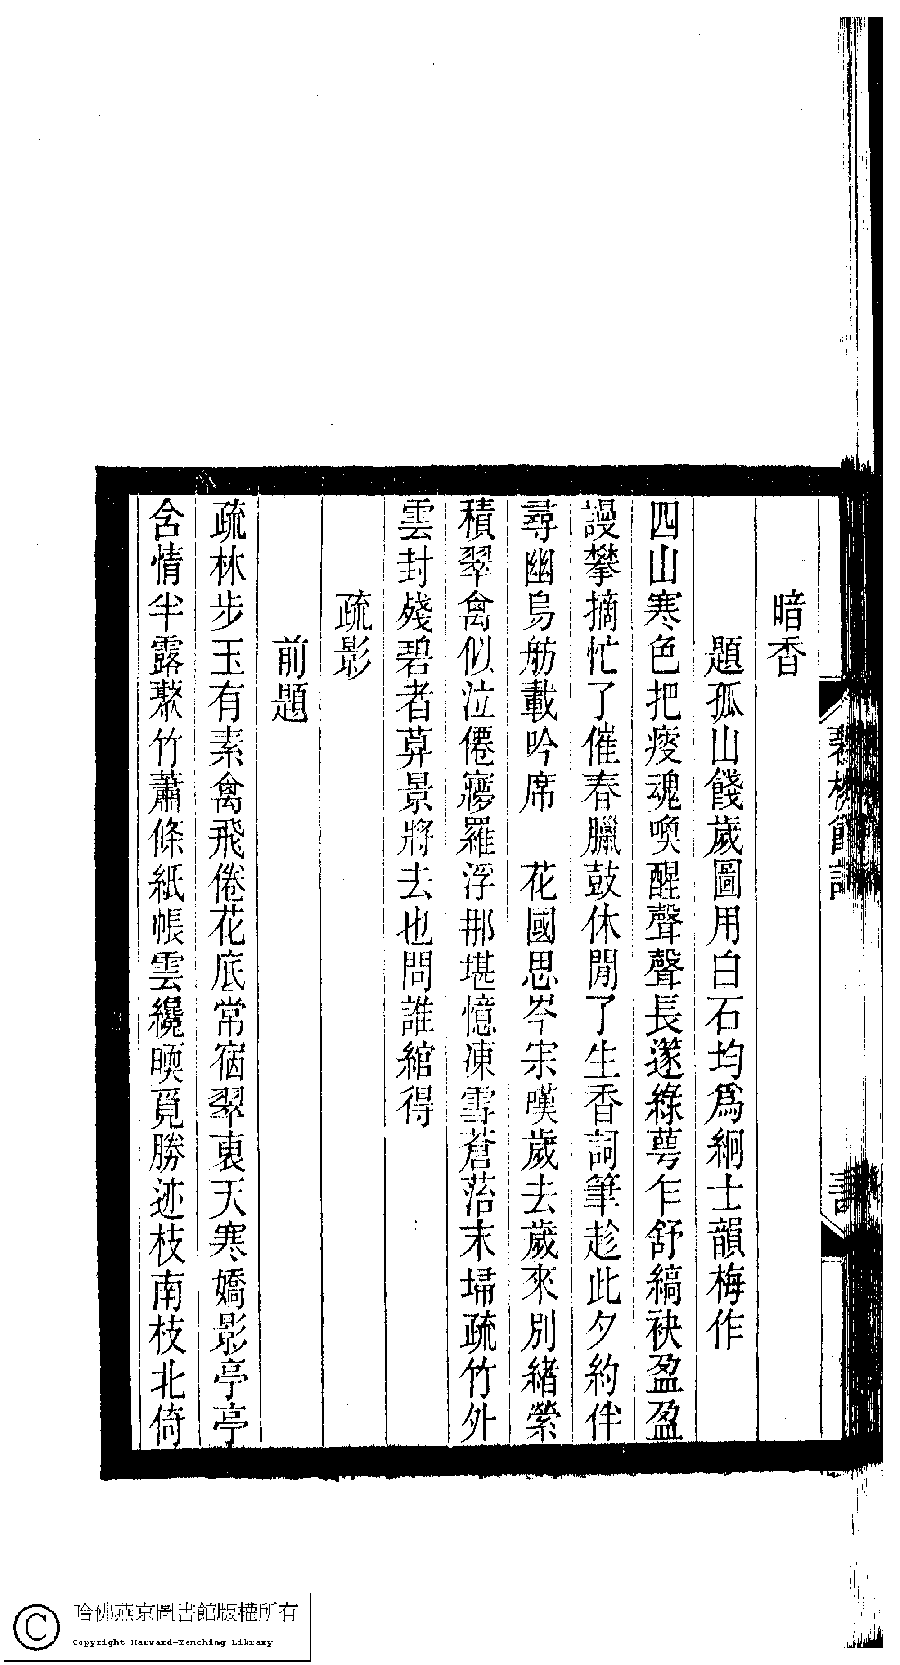 暗香
題孤山餞歲圖用白石均爲絅士韻梅作
四山寒色把瘦魂喚醒聲聲長邃綠萼乍舒縞袂盈盈
謾攀摘忙了催春臘鼓休閒了生香詞筆趁此夕約伴
尋幽烏舫載吟席　花國思岑宋嘆歲去歲來別緒縈
積翠禽似泣僊寱羅浮那堪憶凍雪蒼落未埽疏竹外
雲封殘碧者算景將去也問誰綰得
疏影
前題
疏林步玉有素禽飛倦花底常宿翠裏天寒嬌影亭亭
含情半露叢竹蕭條紙帳雲纔暖覓勝迹枝南枝北倚
哈佛燕京圖書館版權所有
Copyright Harvard-Yenching Library